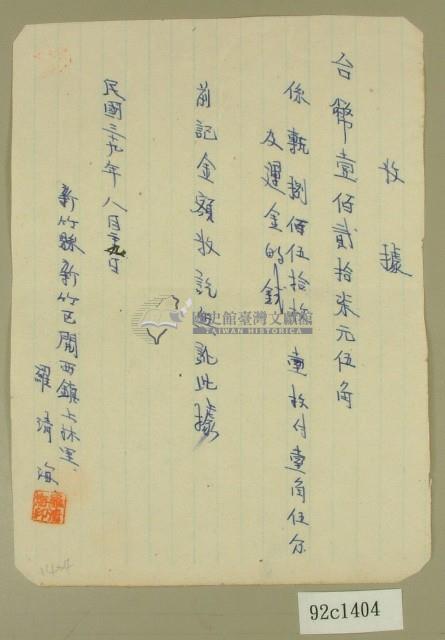 收據
台幣壹佰貳拾柒元伍角
係 甎捌佰伍拾枚 壹枚付壹角伍分
及運金的錢
前記金額收訖無訛此據
民國三十九年八月 九日
新竹縣新竹區關西鎮上林里
羅清海
國史館臺灣文獻館
TAIWAN HISTORICA
羅清海印
1404
92c1404